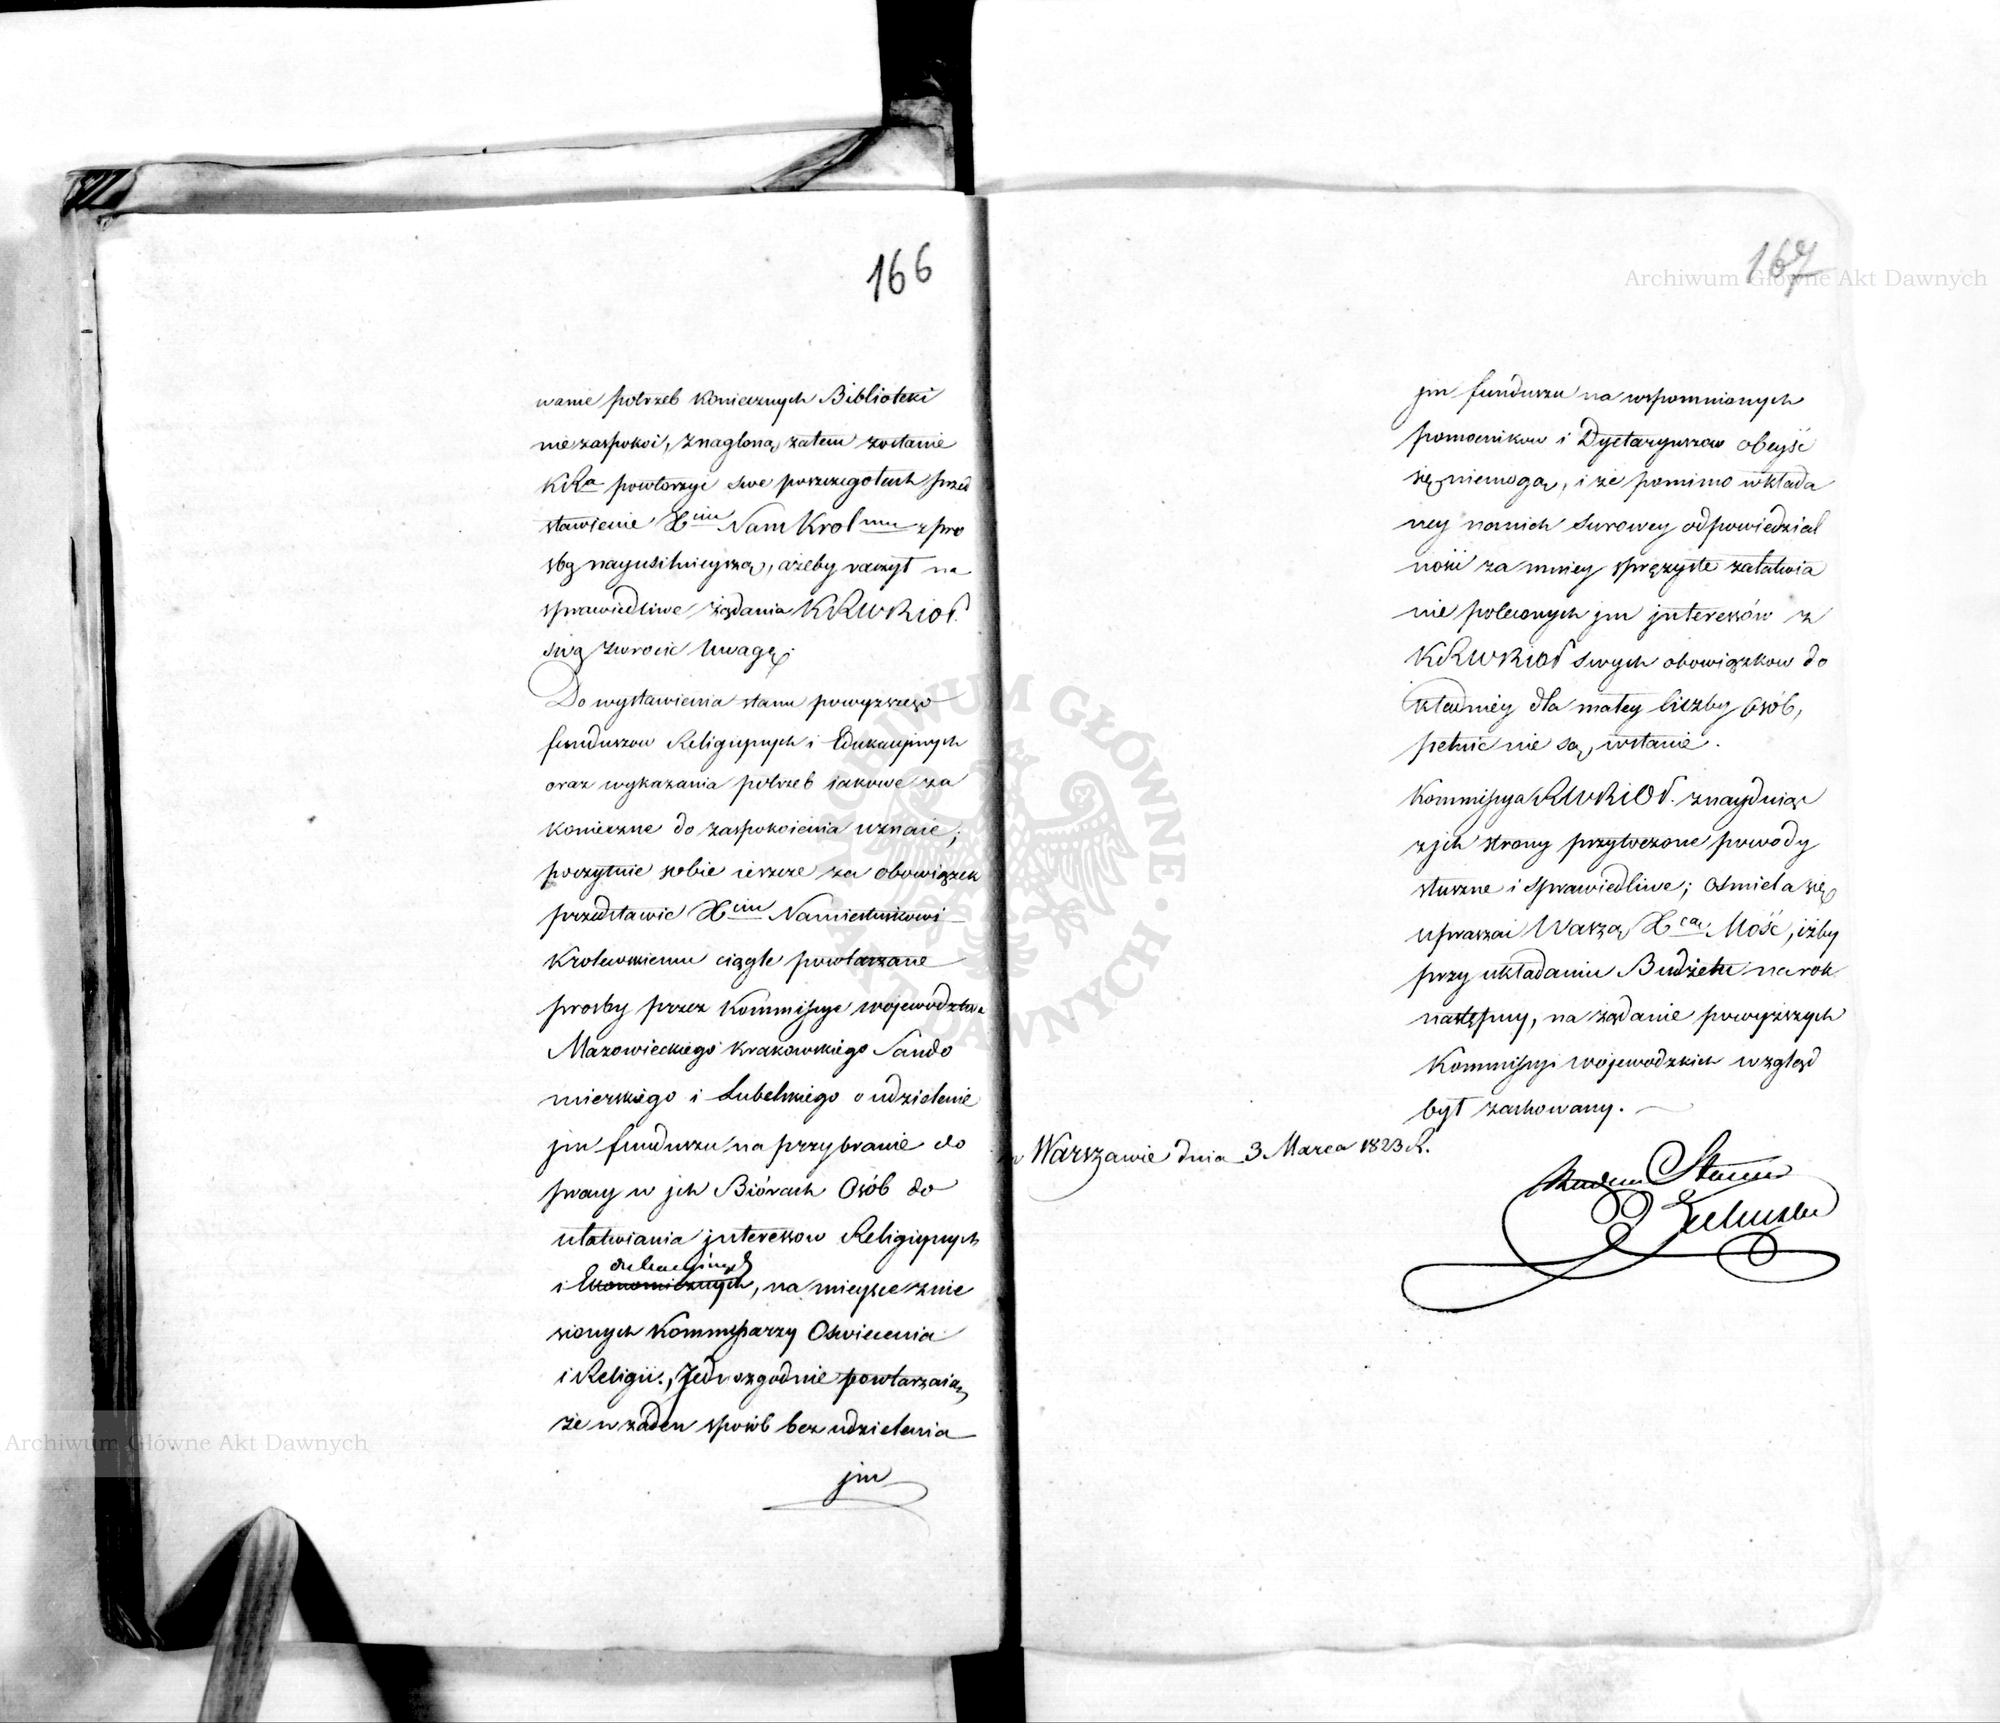 166
wanie potrzeb koniecznych Biblioteki
niezaspokoi, znagloną zatem zostanie
KRa powtorzyć swe poszczegolech przed
stawienie Xciu Nam Krolmu z pro
śbą nayusilnieyszą, ażeby raczył na
sprawiedliwe żądania KRWRiOP.
swą zwrocić Uwagę.
Do wystawienia stanu powyższego
funduszow Religiynych i Edukacyjnych
oraz wykazania potrzeb iakowe za
konieczne do zaspokoienia uznaie;
poczytuie sobie ieszcze za obowiązek
przedstawić Xciu Namiestnikowi
Krolewskiemu ciągle powtarzane
prosby przez Kommissye wojewodztwa
Mazowieckiego Krakowskiego Sando
mierskiego i Lubelskiego o udzielenie
jm funduszu na przybranie do
pracy w jch Biórach Osób do
ułatwiania jnteressow Religiynych
edukacyjnych
i Ekonomicznych, na mieysce znie
sionych Kommissarzy Oświecenia
i Religii., Jednozgodnie powtarzaią,
że w żaden sposób bez udzielenia
jm
167
jm funduszu na wspomnionych
pomocnikow i Dyetaryuszow obeyść
się niemogą, i że pomimo wkłada
ney nanich surowey odpowiedzial
ności za mniey sprężyste załatwia
nie poleconych jm jnteressów z
KRWRiOP swych obowiązkow do
kładniey dla małey liczby Osób,
pełnić nie są, wstanie.
Kommissya RWRiOP. znayduiąc
z jch strony przytoczone powody
słuszne i sprawiedliwe; ośmiela się
upraszać Waszą Xcą Mość, iżby
przy układaniu Budżetu na rok
następny, na żądanie powyższych
Kommissyi wojewodzkich wzgląd
był zachowany.
w Warszawie dnia 3 Marca 1823 R.